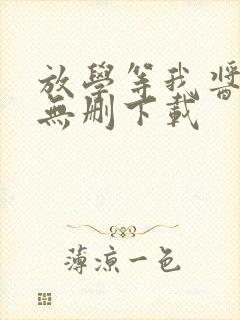 放學等我醬
無刪下載
薄涼一色